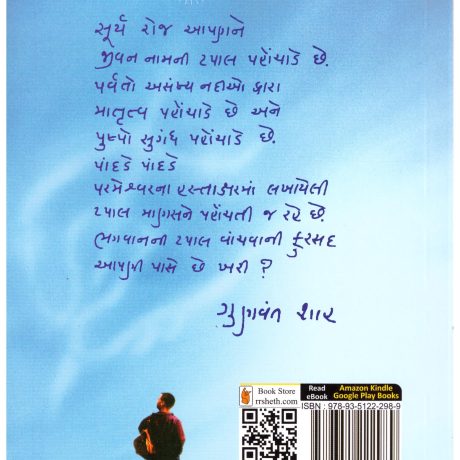 સૂર્ય રોજ આપણને
જીવન નામની ટપાલ પહોંચાડે છે.
પર્વતો અસંખ્ય નદીઓ દ્વારા
માતૃત્વ પહોંચાડે છે અને
પુષ્પો સુગંધ પહોંચાડે છે.
પાંદડે પાંદડે
પરમેશ્વરના હસ્તાક્ષરમાં લખાયેલી
ટપાલ માણસને પહોંચતી જ રહે છે.
ભગવાનની ટપાલ વાંચવાની ફુરસદ
આપણી પાસે છે ખરી ?
ગુણવંત શાહ
Book Store
rrsheth.com
Read
eBook
Amazon Kindle
Google Play Books
ISBN : 978-93-5122-298-9